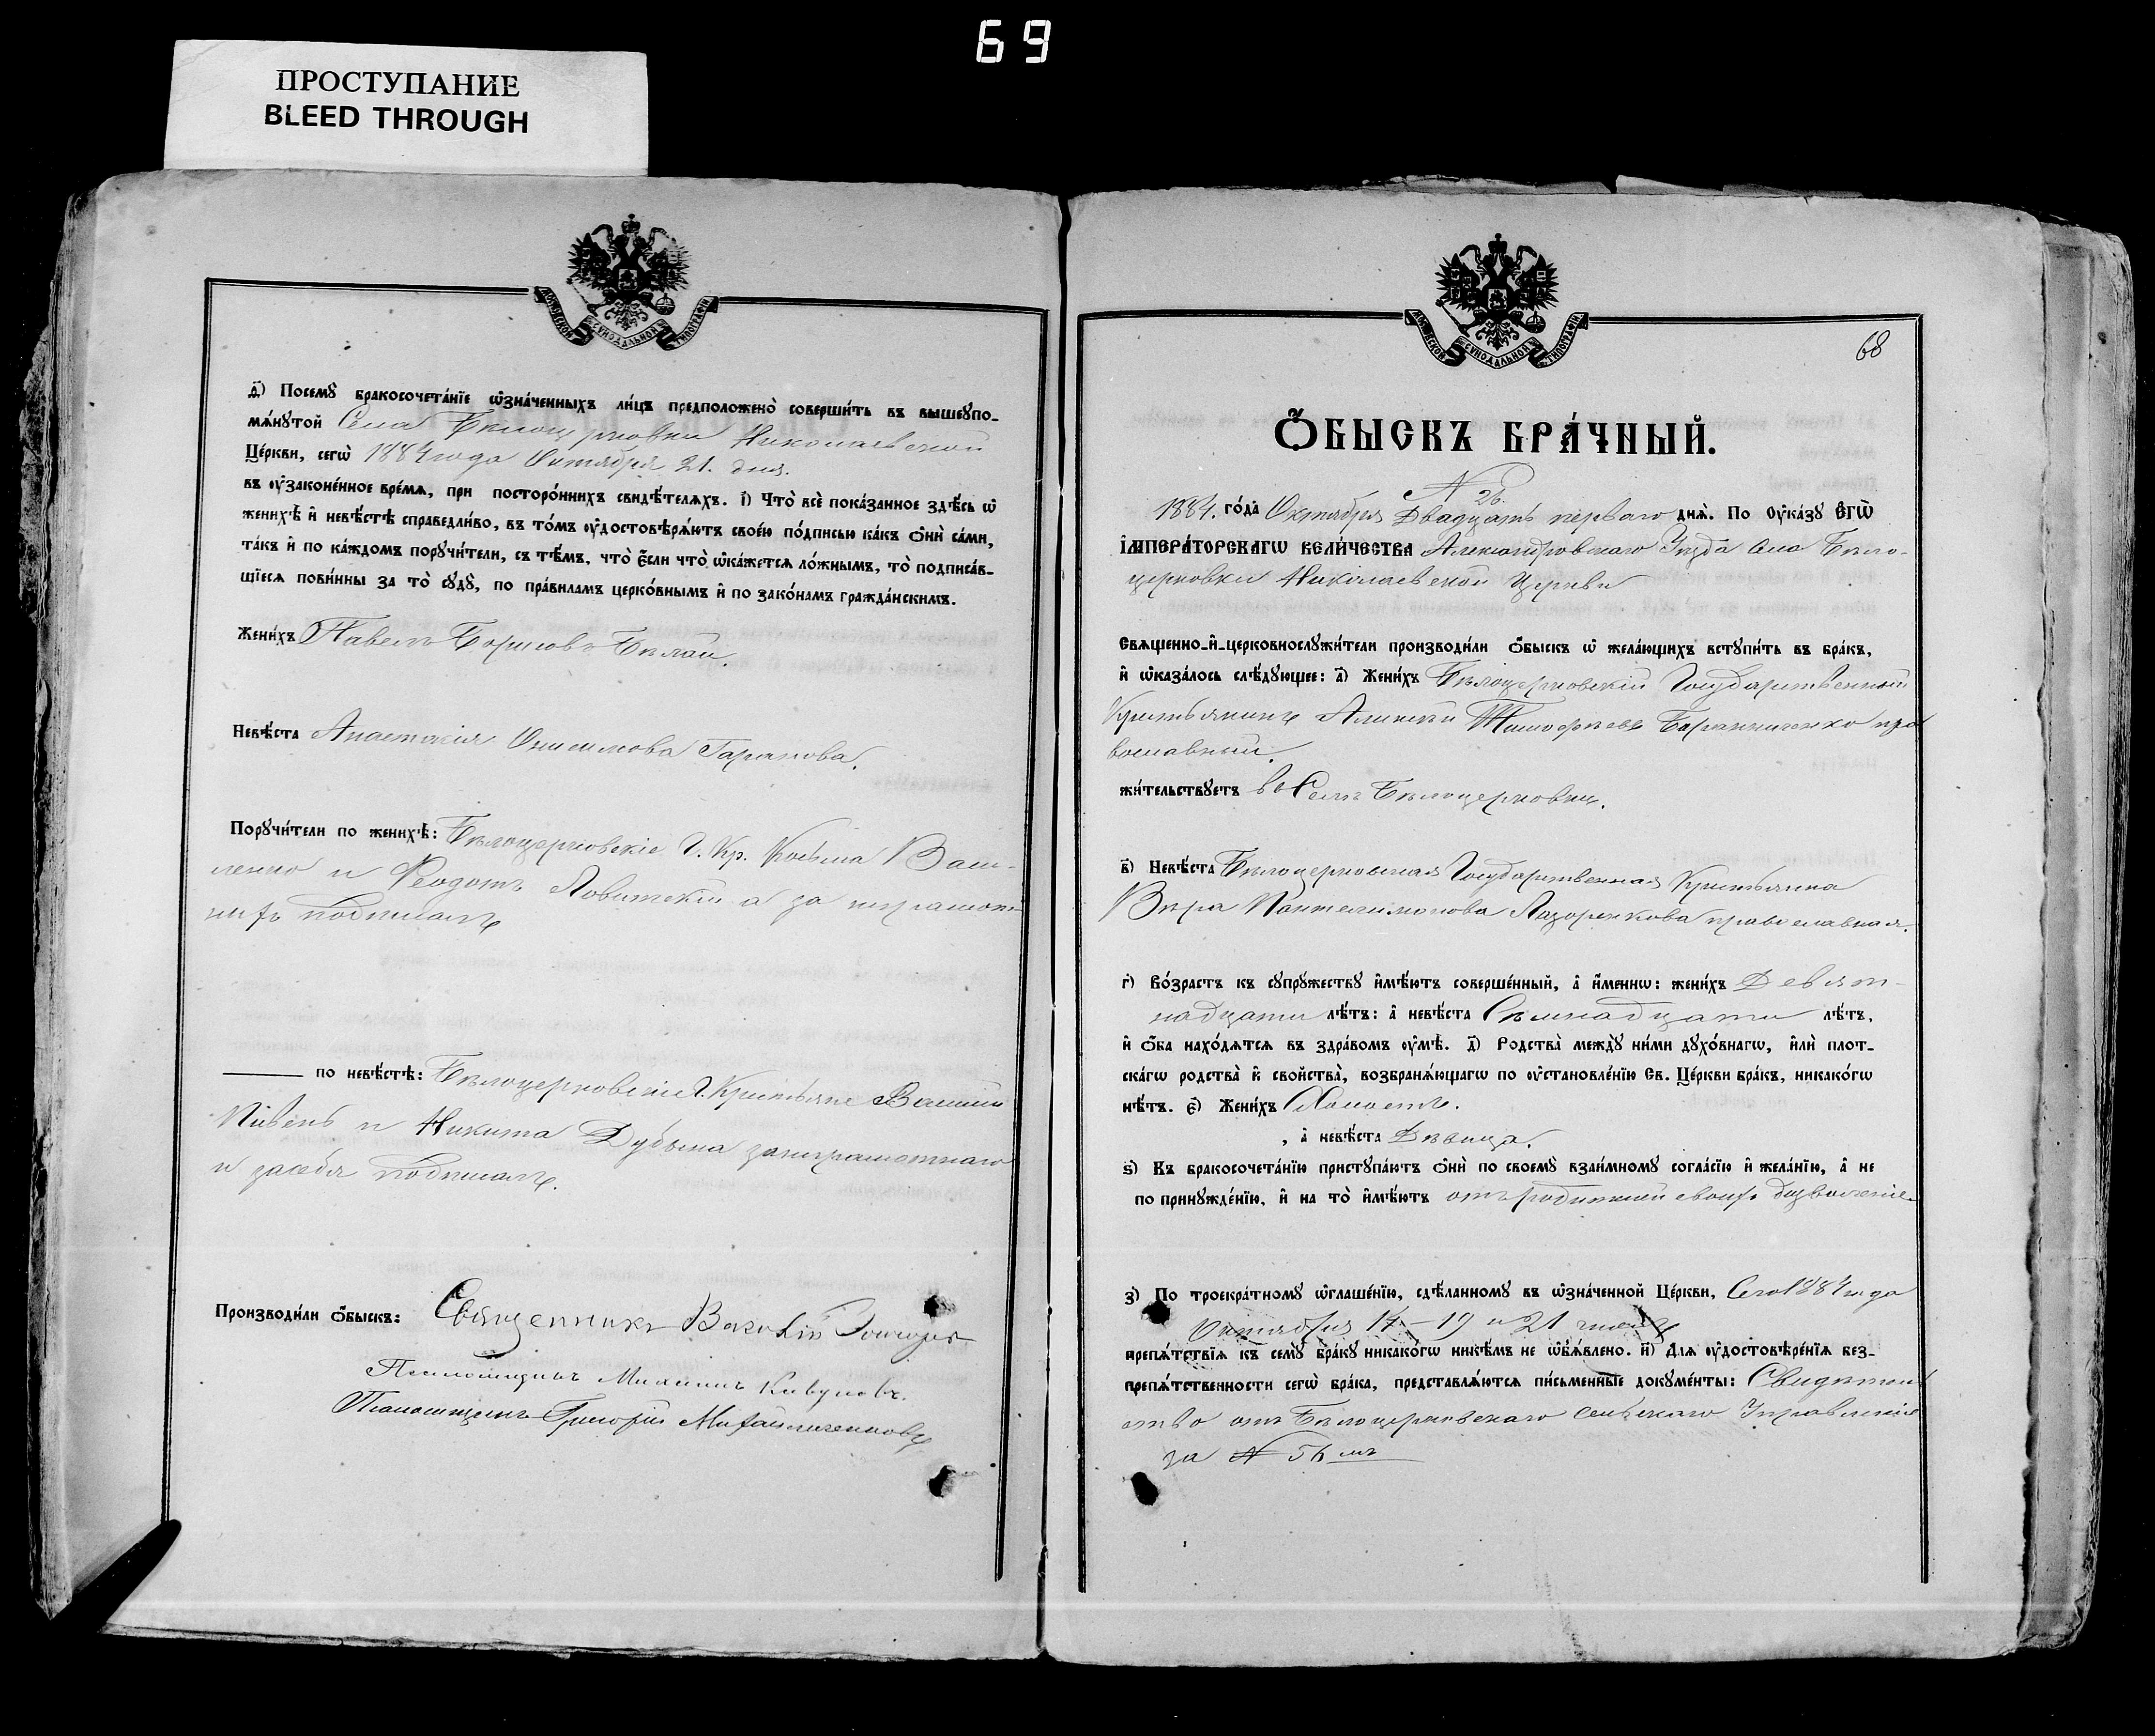 69
ПРОСТУПАНИЕ
BLEED THROUGH
МОСКОВСКОЙ СѴНОДАЛЬНОЙ ТИПОГРАФІИ
д҃) Посемꙋ̀ бракосочета́нїе ѡ҆зна́ченныхъ ли́цъ предположено̀ соверши́ть въ вышеꙋпо-
мѧ́нꙋтой Села Белоцерковки Николаевской
Це́ркви, сегѡ̀ 1884 года Октября 21. дня.
въ ᲂу҆зако́ненное вре́мѧ, при посторо́ннихъ свидѣ́телѧхъ. і҃) Что̀ всѐ пока́занное здѣ́сь ѡ҆
женихѣ̀ и҆ невѣ́стѣ справедли́во, въ то́мъ ᲂу҆достовѣрѧ́ютъ свое́ю по́дписью ка́къ ѻ҆нѝ са́ми,
та́къ и҆ по ка́ждомъ порꙋчи́тели, съ тѣ́мъ, что̀ є҆́сли что̀ ѡ҆ка́жетсѧ ло́жнымъ, то̀ подписа́в-
шїесѧ пови́нны за то̀ сꙋдꙋ̀, по пра́виламъ церко́внымъ и҆ по зако́намъ гражда́нскимъ.
Жени́хъ Павелъ Борисовъ Белай.
Невѣ́ста Анастасія Онисимова Гаркова.
Порꙋчи́тели по женихѣ̀: Бѣлоцерковскіе Г. Кр. Косьма Ваш-
ленко и Ѳеодотъ Ловитскій а за неграмот-
ныхъ подписалъ
по невѣ́стѣ: Бѣлоцерковскіе Г. Крестьяне Василій
Пивень и Никита Дубына за неграмотнаго
и за себя подписалъ.
Производи́ли ѻ҆́быскъ: Священникъ
Псаломщикъ Михаилъ
Псаломщикъ Григорій Михайличенковъ
МОСКОВСКОЙ СѴНОДАЛЬНОЙ ТИПОГРАФІИ
68
Ѻ҆́БЫСКЪ БРА́ЧНЫЙ.
N 26.
1884. го́да Октября Двадцать перваго днѧ̀. По ᲂу҆ка́зꙋ Є҆Гѡ̀
І҆МПЕРА́ТОРСКАГѠ ВЕЛИ́ЧЕСТВА Александровскаго Уѣзда Села Бѣло-
церковки Николаевской Церкви
Свѧще́нно-и҆-церковнослꙋжи́тели производи́ли ѻ҆́быскъ ѡ҆ жела́ющихъ встꙋпи́ть въ бра́къ,
и҆ ѡ҆каза́лось слѣ́дꙋющее: а҃) Жени́хъ Бѣлоцерковскій Государственный
Крестьянинъ Алексѣй Тимофѣевъ Бараниченко пра
вославный.
жи́тельствꙋетъ въ Селѣ Бѣлоцерковкѣ.
в҃) Невѣ́ста Бѣлоцерковская Государственная Крестьянка
Вѣра Пантелимонова Лазоренкова православная.
г҃) Во́зрастъ къ сꙋпрꙋ́жествꙋ и҆мѣ́ютъ соверше́нный, а҆ и҆́меннѡ: жени́хъ Девят-
надцати лѣ́тъ: а҆ невѣ́ста Семнадцати лѣ́тъ,
и҆ ѻ҆́ба нахо́дѧтсѧ въ здра́вомъ ᲂу҆мѣ̀. д҃) Родства̀ междꙋ̀ ни́ми дꙋхо́внагѡ, и҆лѝ плот-
ска́гѡ родства̀ и҆ свойства̀, возбранѧ́ющагѡ по ᲂу҆становле́нїю Св. Це́ркви бра́къ, никако́гѡ
нѣ́тъ. є҃) Жени́хъ Холостъ.
, а҆ невѣ́ста Дѣвица.
ѕ҃) Къ бракосочета́нїю пристꙋпа́ютъ ѻ҆нѝ по своемꙋ̀ взаи́мномꙋ согла́сїю и҆ жела́нїю, а҆ не
по принꙋжде́нїю, и҆ на то̀ и҆мѣ́ютъ отъ родителей своихъ дозволеніе
з҃) По троекра́тномꙋ ѡ҆глаше́нїю, сдѣ́ланномꙋ въ ѡ҆зна́ченной Це́ркви, Сего 1884 года
Октября 14 – 19 и 21 числъ
препѧ́тствїѧ къ семꙋ̀ бра́кꙋ никако́гѡ никѣ́мъ не ѡ҆б̾ѧ́влено. и҃) Длѧ ᲂу҆достовѣре́нїѧ без-
препѧ́тственности сегѡ̀ бра́ка, представлѧ́ютсѧ пи́сьменные докꙋме́нты: Свидѣтель
ство отъ Бѣлоцерковскаго Сельскаго Управленія
за N 56 мъ